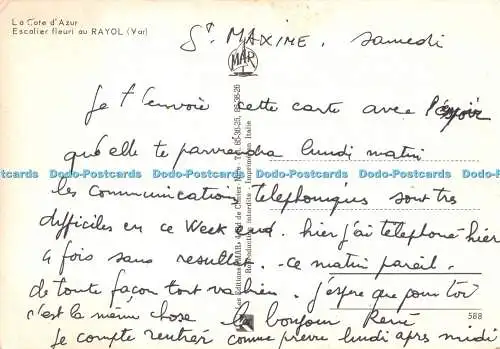 La Cote d'Azur
Escalier fleuri au RAYOL (Var)
St MAXIME. samedi
MAR
Je t'envoie cette carte avec l'espoir
qu'elle te parviendra lundi matin
les communications telephoniques sont très
difficiles en ce Week end. hier j'ai telephoné hier
4 fois sans resultat. ce matin pareil.
de toute façon tout va bien. j'espère que pour toi
c'est la même chose bonjour René
Je compte rentrer comme prévu lundi après midi
Les Editions "MAR"
Reproduction interdite - Imprimé en Italie
588
Dodo-Postcards Dodo-Postcards Dodo-Postcards Dodo-Postcards